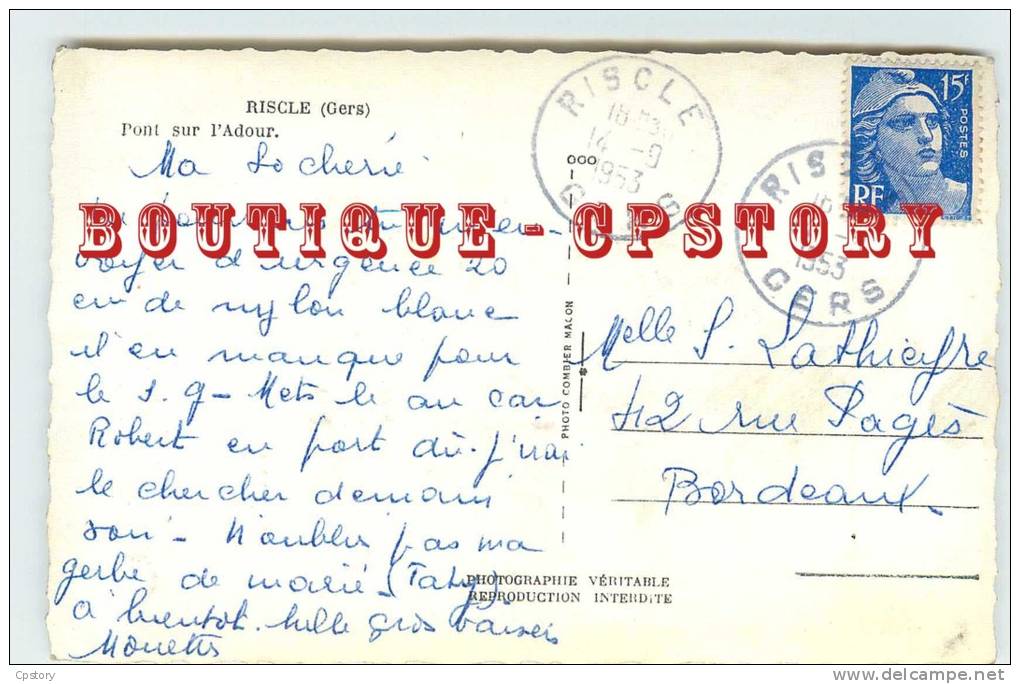 RISCLE (Gers)
Pont sur l'Adour.
Ma
BOUTIQUE - CPSTORY
voyer d'urgence 20
cm de nylon blanc
il en manque pour
le S. g - Mets le au car
Robert en port dû. J'irai
le chercher demain
soir - N'oublie pas ma
gerbe de marié (Taty).
à bientôt. Mille gros baisers
PHOTO COMBIER MACON
PHOTOGRAPHIE VÉRITABLE
REPRODUCTION INTERDITE
RISCLE
14 -9
1953
15f
POSTES
RF
RIS
1953
GERS
Melle S. Lathieyre
42 rue Pagès
Bordeaux.
Cpstory
delcampe.net